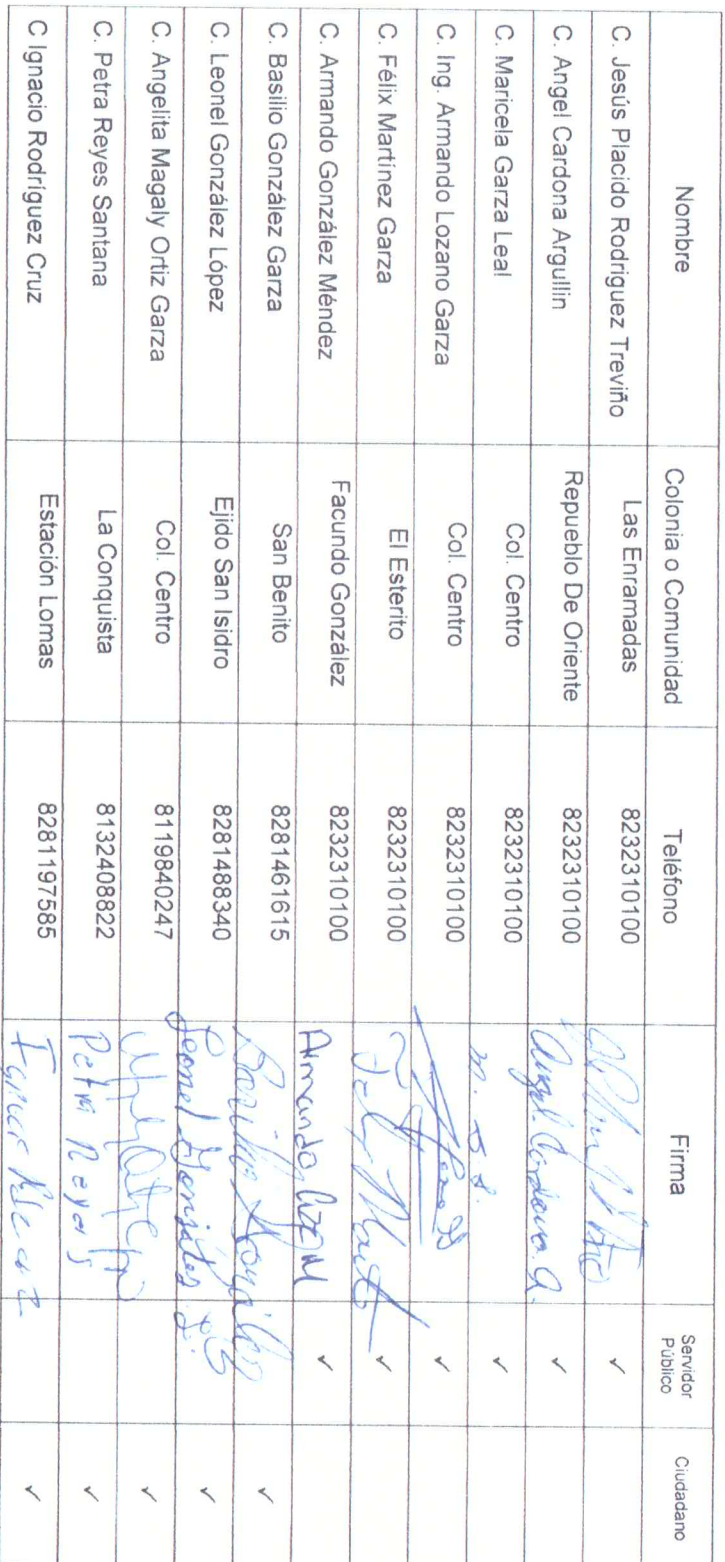 Nombre Colonia o Comunidad Teléfono Firma Servidor Público Ciudadano
C. Jesús Placido Rodriguez Treviño Las Enramadas 8232310100 ✓
C. Angel Cardona Argullin Repueblo De Oriente 8232310100 Angel Cardona A. ✓
C. Maricela Garza Leal Col. Centro 8232310100 ✓
C. Ing. Armando Lozano Garza Col. Centro 8232310100 ✓
C. Félix Martínez Garza El Esterito 8232310100 ✓
C. Armando González Méndez Facundo González 8232310100 Armando ✓
C. Basilio González Garza San Benito 8281461615 Basilio ✓
C. Leonel González López Ejido San Isidro 8281488340 Leonel ✓
C. Angelita Magaly Ortiz Garza Col. Centro 8119840247 ✓
C. Petra Reyes Santana La Conquista 8132408822 Petra Reyes ✓
C Ignacio Rodríguez Cruz Estación Lomas 8281197585 ✓